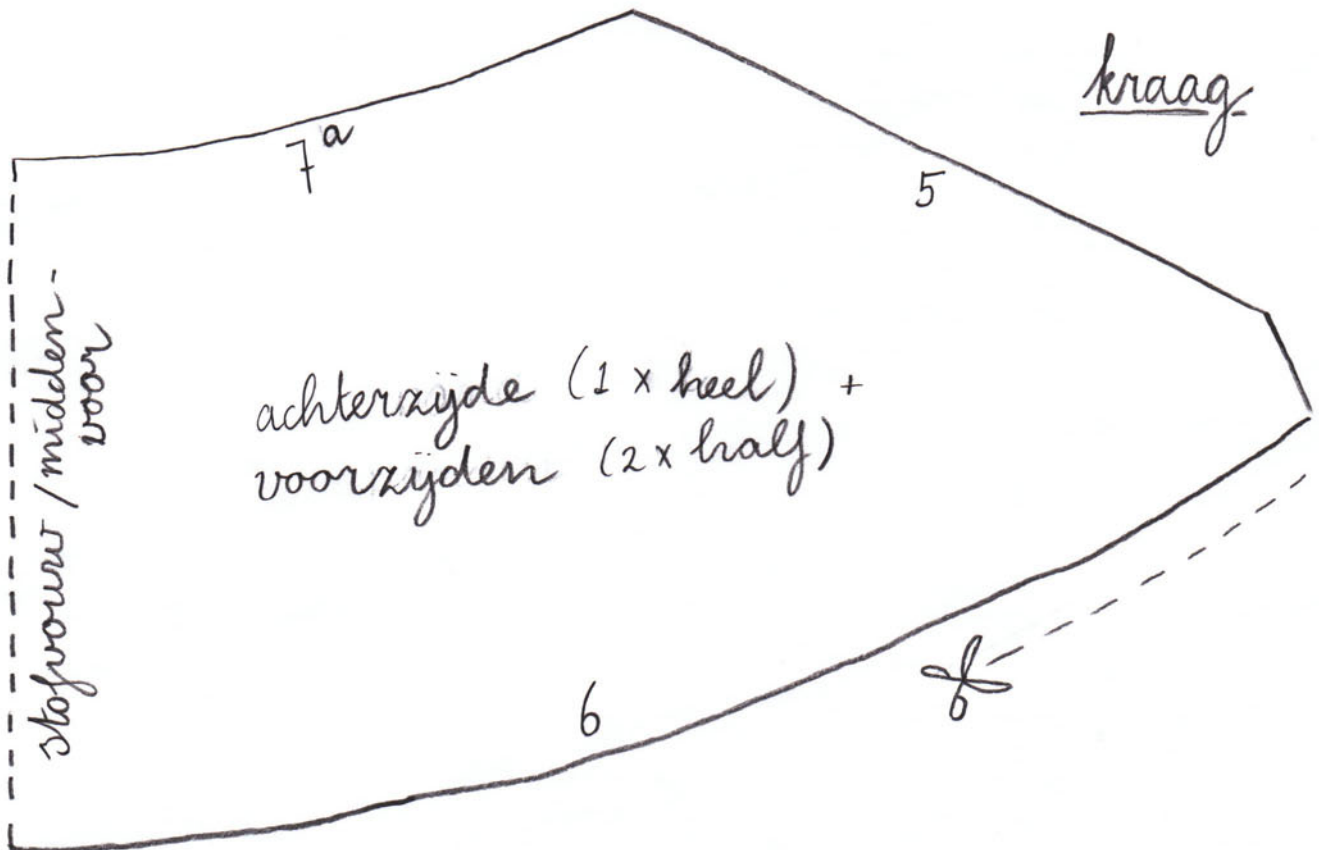 kraag
7a
5
stofvouw / midden-
voor
achterzijde (1 x heel) +
voorzijden (2 x half)
6